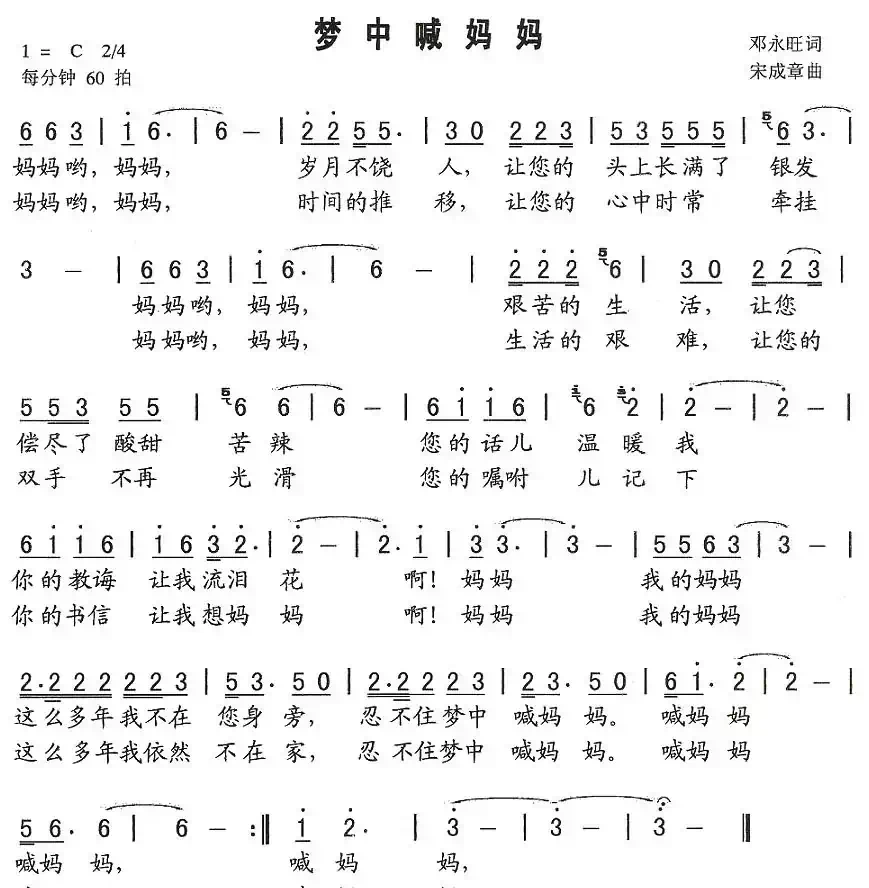 梦中喊妈妈
1 = C 2/4
每分钟 60 拍
邓永旺词
宋成章曲
6 6 3 | 1 6. | 6 - | 2 2 5 5. | 3 0 2 2 3 | 5 3 5 5 5 | 5 6 3. |
妈妈哟，妈妈， 岁月不饶 人，让您的 头上长满了 银发
妈妈哟，妈妈， 时间的推 移，让您的 心中时常 牵挂
3 - | 6 6 3 | 1 6. | 6 - | 2 2 2 5 6 | 3 0 2 2 3 |
妈妈哟，妈妈， 艰苦的 生 活，让您
妈妈哟，妈妈， 生活的 艰 难，让您的
5 5 3 5 5 | 5 6 6 | 6 - | 6 1 1 6 | 1 6 3 2 | 2 - | 2 - |
偿尽了 酸甜 苦辣 您的话儿 温暖我
双手 不再 光滑 您的嘱咐 儿记下
6 1 1 6 | 1 6 3 2. | 2 - | 2. 1 | 3 3. | 3 - | 5 5 6 3 | 3 - |
你的教诲 让我流泪 花 啊！妈妈 我的妈妈
你的书信 让我想妈 妈 啊！妈妈 我的妈妈
2. 2 2 2 2 2 3 | 5 3. 5 0 | 2. 2 2 2 3 | 2 3. 5 0 | 6 1. 2 | 2 - |
这么多年我不在 您身 旁， 忍不住梦中 喊妈 妈。 喊妈妈
这么多年我依然 不在 家， 忍不住梦中 喊妈 妈。 喊妈妈
5 6. 6 | 6 - :‖ 1 2. | 3 - | 3 - | 3 - ‖
喊妈 妈， 喊妈 妈，